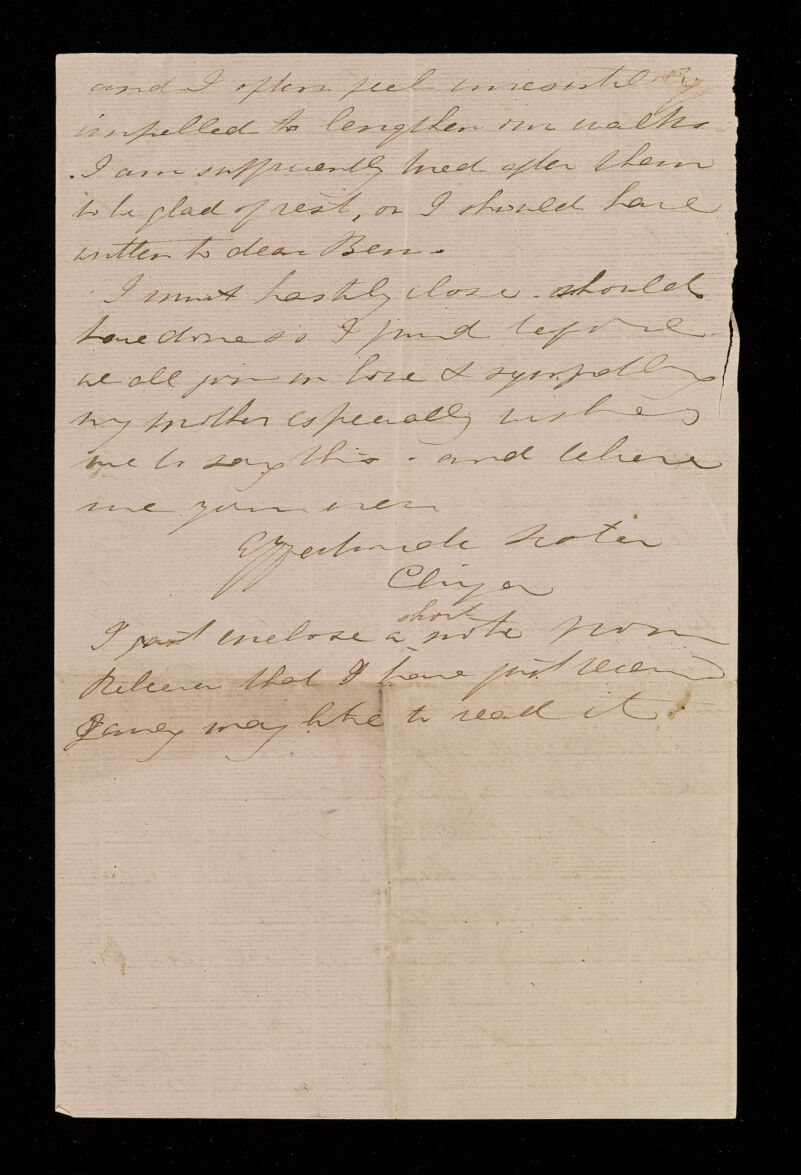 and I often feel irresistibly
impelled to lengthen our walks.
I am sufficiently tired after them
to be glad of rest, or I should have
written to dear Ben.
I must hastily close - should
have done so I find before
we all join in love & sympathy
my mother especially wishes
me to say this - and believe
me your ever
Affectionate Sister
Eliza
I just enclose a short note from
Rebecca that I have just received
Janey may like to read it